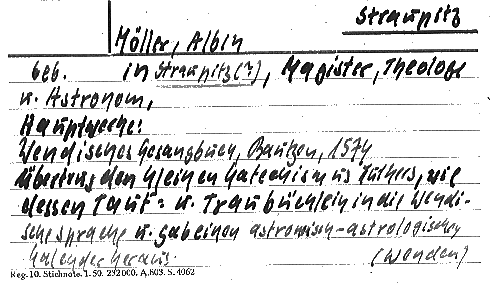 Straupitz
Möller, Albin
geb. in Straupitz(?), Magister, Theologe
u. Astronom,
Hauptwerke:
Wendisches Gesangbuch, Bautzen, 1574
Übertrug den kleinen Katechismus Luthers, wie
dessen Tauf= u. Traubüchlein in die Wendi-
sche Sprache u. gab einen astromisch-astrologischen
Kalender heraus. (Wenden)
Reg. 10. Stichnote. 1. 50. 232000. A. 803. S. 4062